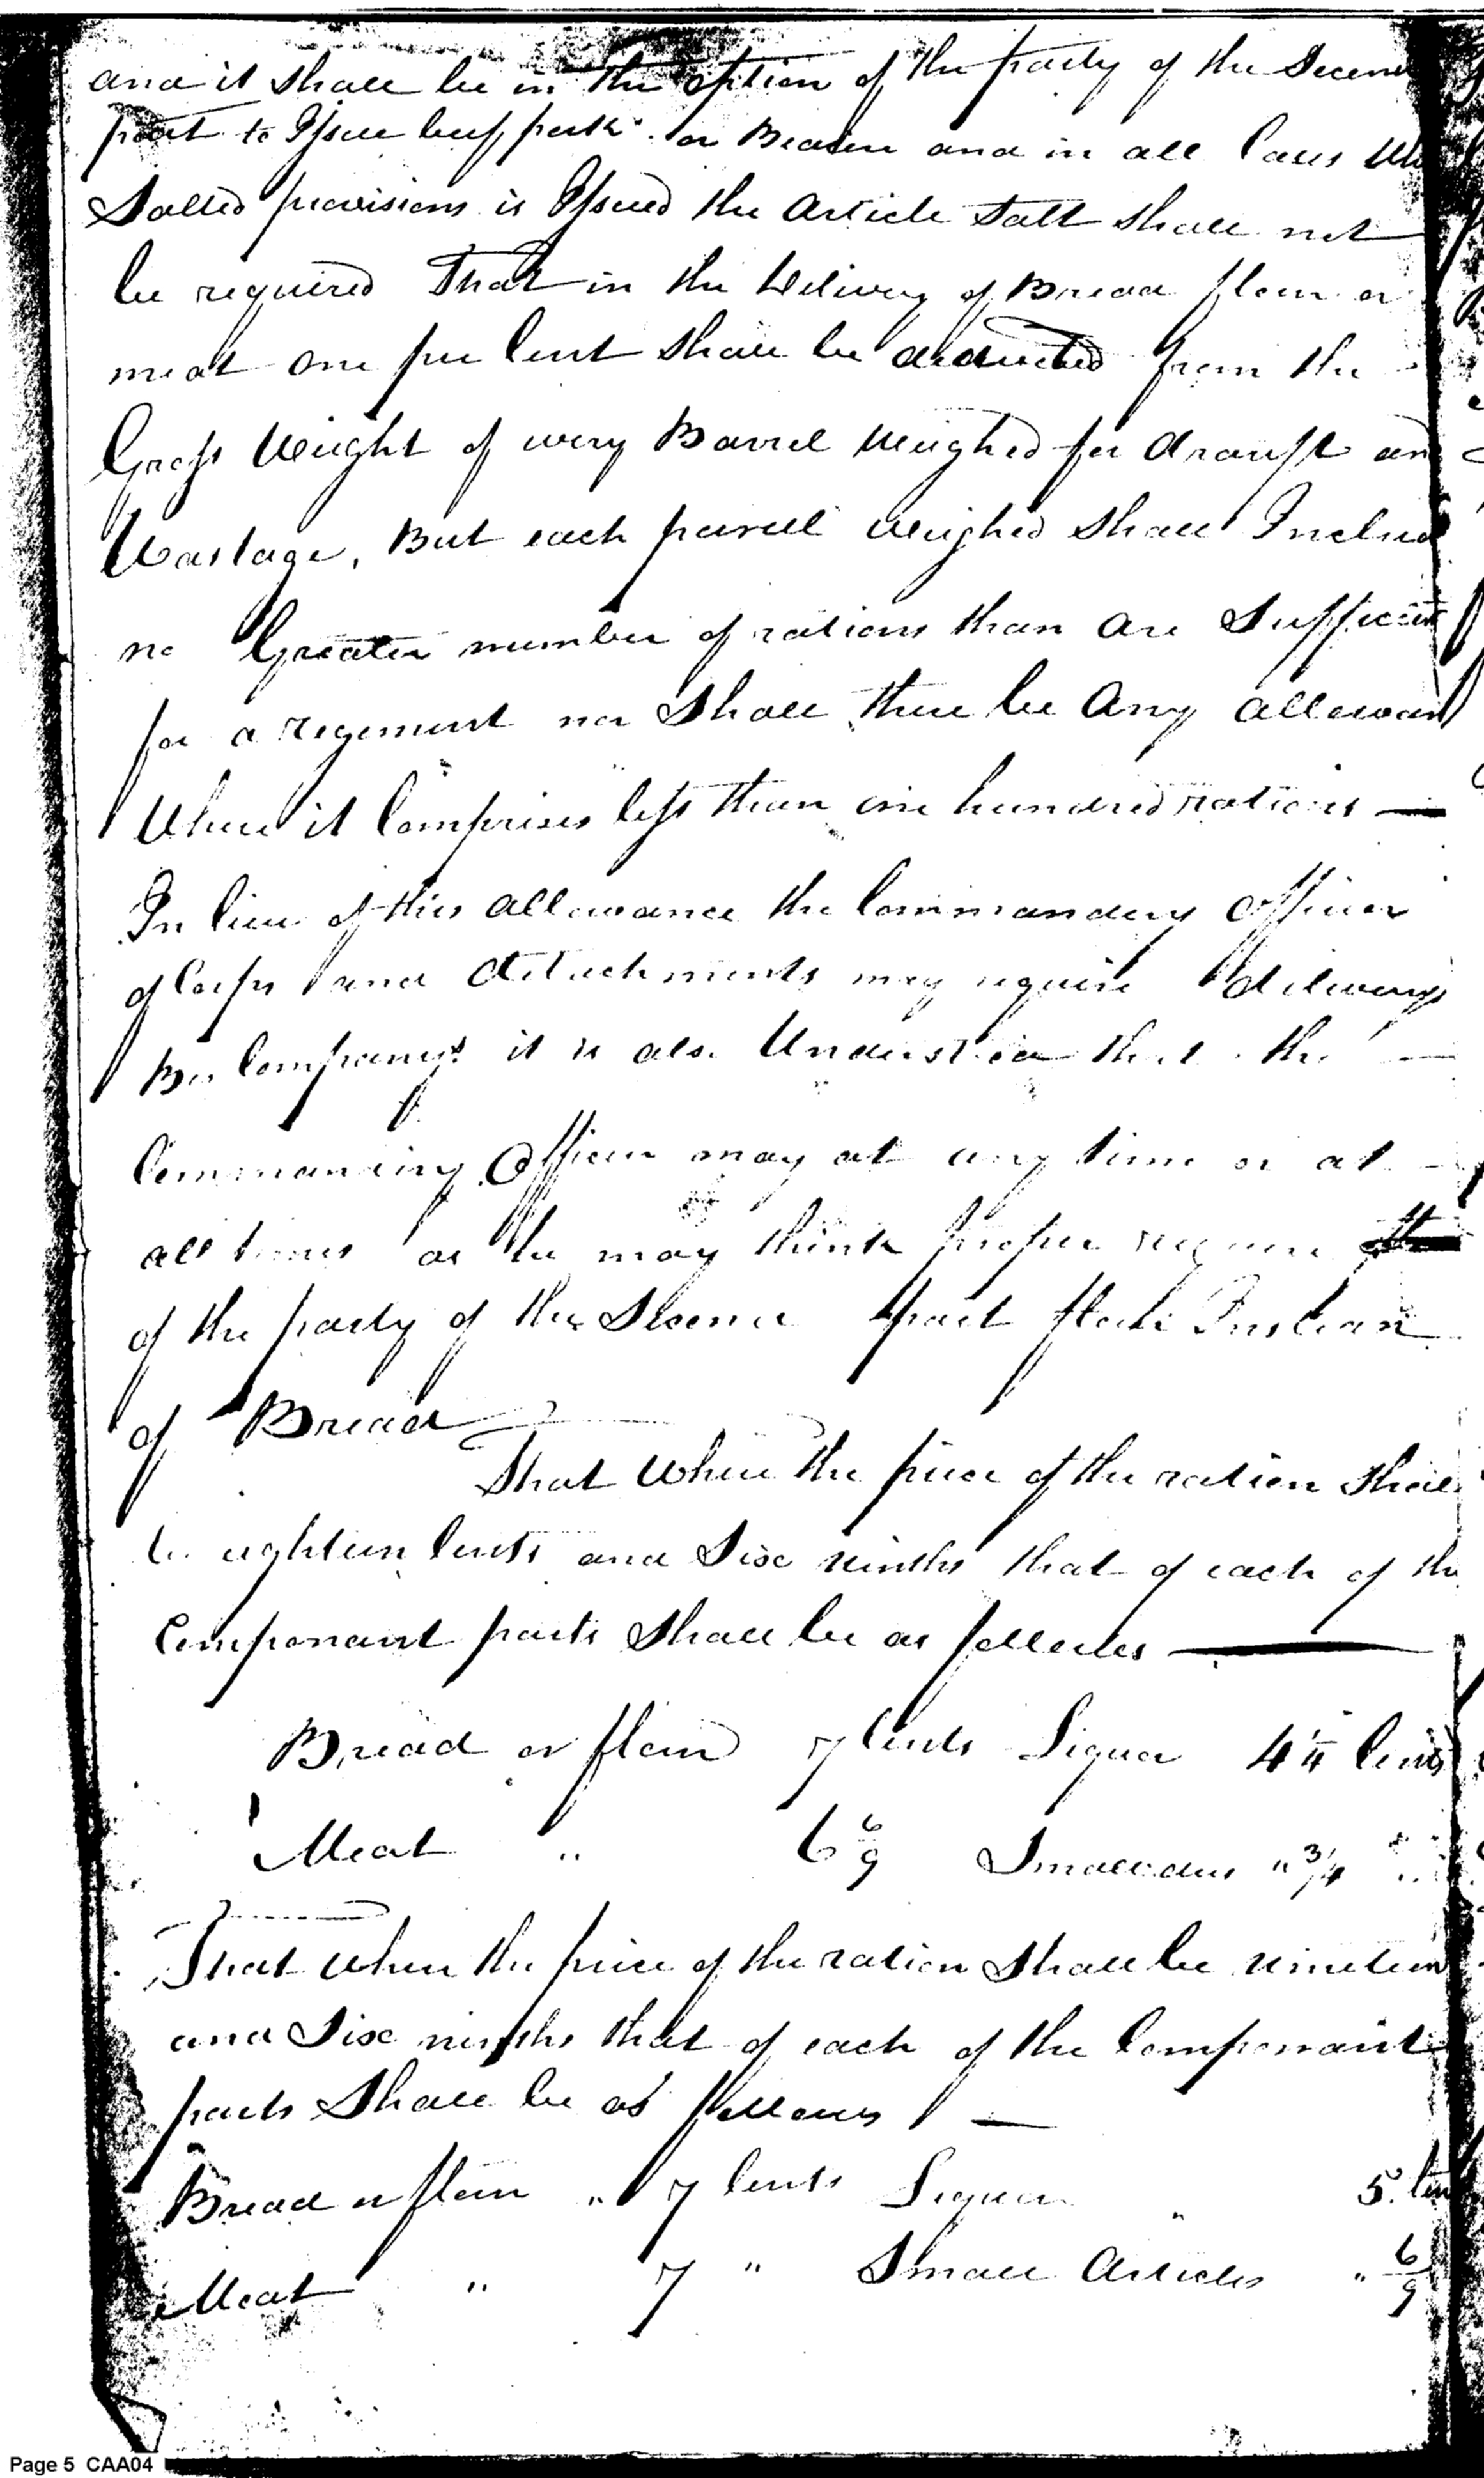 and it shall be in the option of the party of the Secon
part to Issue beef pork or Beacon and in all Cases
Salted provisions is Issued the Article Salt shall not
be required That in the Delivery of Bread flour or
meat one per Cent shall be deducted from the
Gross Weight of every Barrel Weighed for draught an
Wastage, But each parcel Weighed Shall Includ
no Greater number of rations than are Sufficient
for a regement nor Shall there be Any allowan
Where it Comprises less than one hundred rations —
In lieu of this allowance the Commandeing Officer
of Corps and detachments may require delivery
By Companys it is also Understood that the —
Commanding Officer may at any time or at
all times as he may think proper require
of the party of the Second part flour Instead
of Bread
That When the price of the ration Shall
be eighteen Cents and Six ninths that of each of the
Componant parts Shall be as follows —
Bread or flour 7 Cents Liquor 4 1/4 Cents
Meat " 6 6/9 Smallarticles " 3/4
That When the price of the ration Shall be nineteen
and Six ninths that of each of the Componant
parts Shall be as follows —
Bread or flour " 7 Cents Liquor " 5 Cen
Meat " 7 " Small Articles " 6/9
Page 5 CAA04